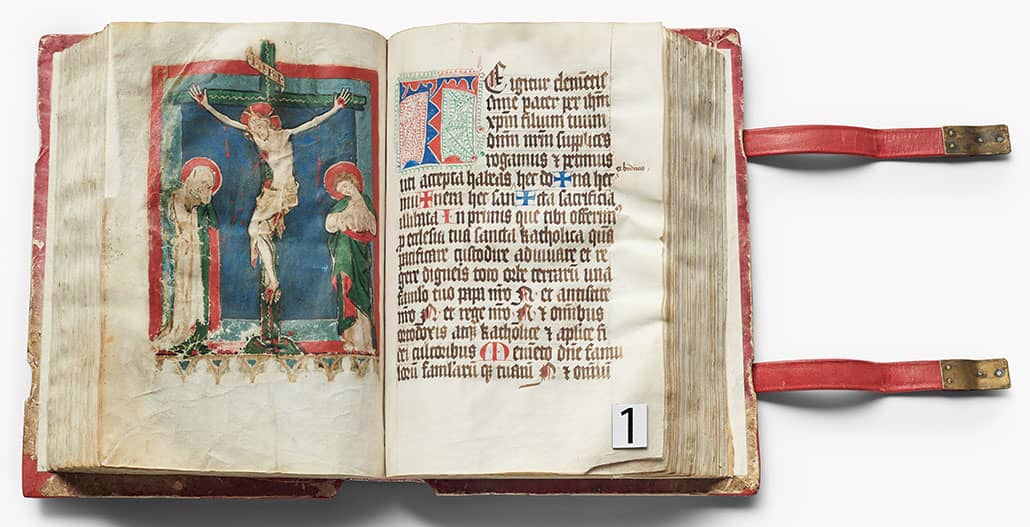 INRI
TE igitur clemētis
sime pater per ihm
xpm filium tuum
dnm nrm supplices
rogamus & petimus
uti accepta habeas hec do✠na hec
mu✠nera hec san✠cta sacrificia
illibata In primis que tibi offerim
p ecclesia tua sancta katholica quā
pacificare custodire adunare et re
gere digneris toto orbe terrarū una
famulo tuo papa nro N et antistite
nro N et rege nro N & omnibus
orthodoxis atq katholice & aplice fi
dei cultoribus Memento dne famu
lorū famularū q tuarū N & omniū
1